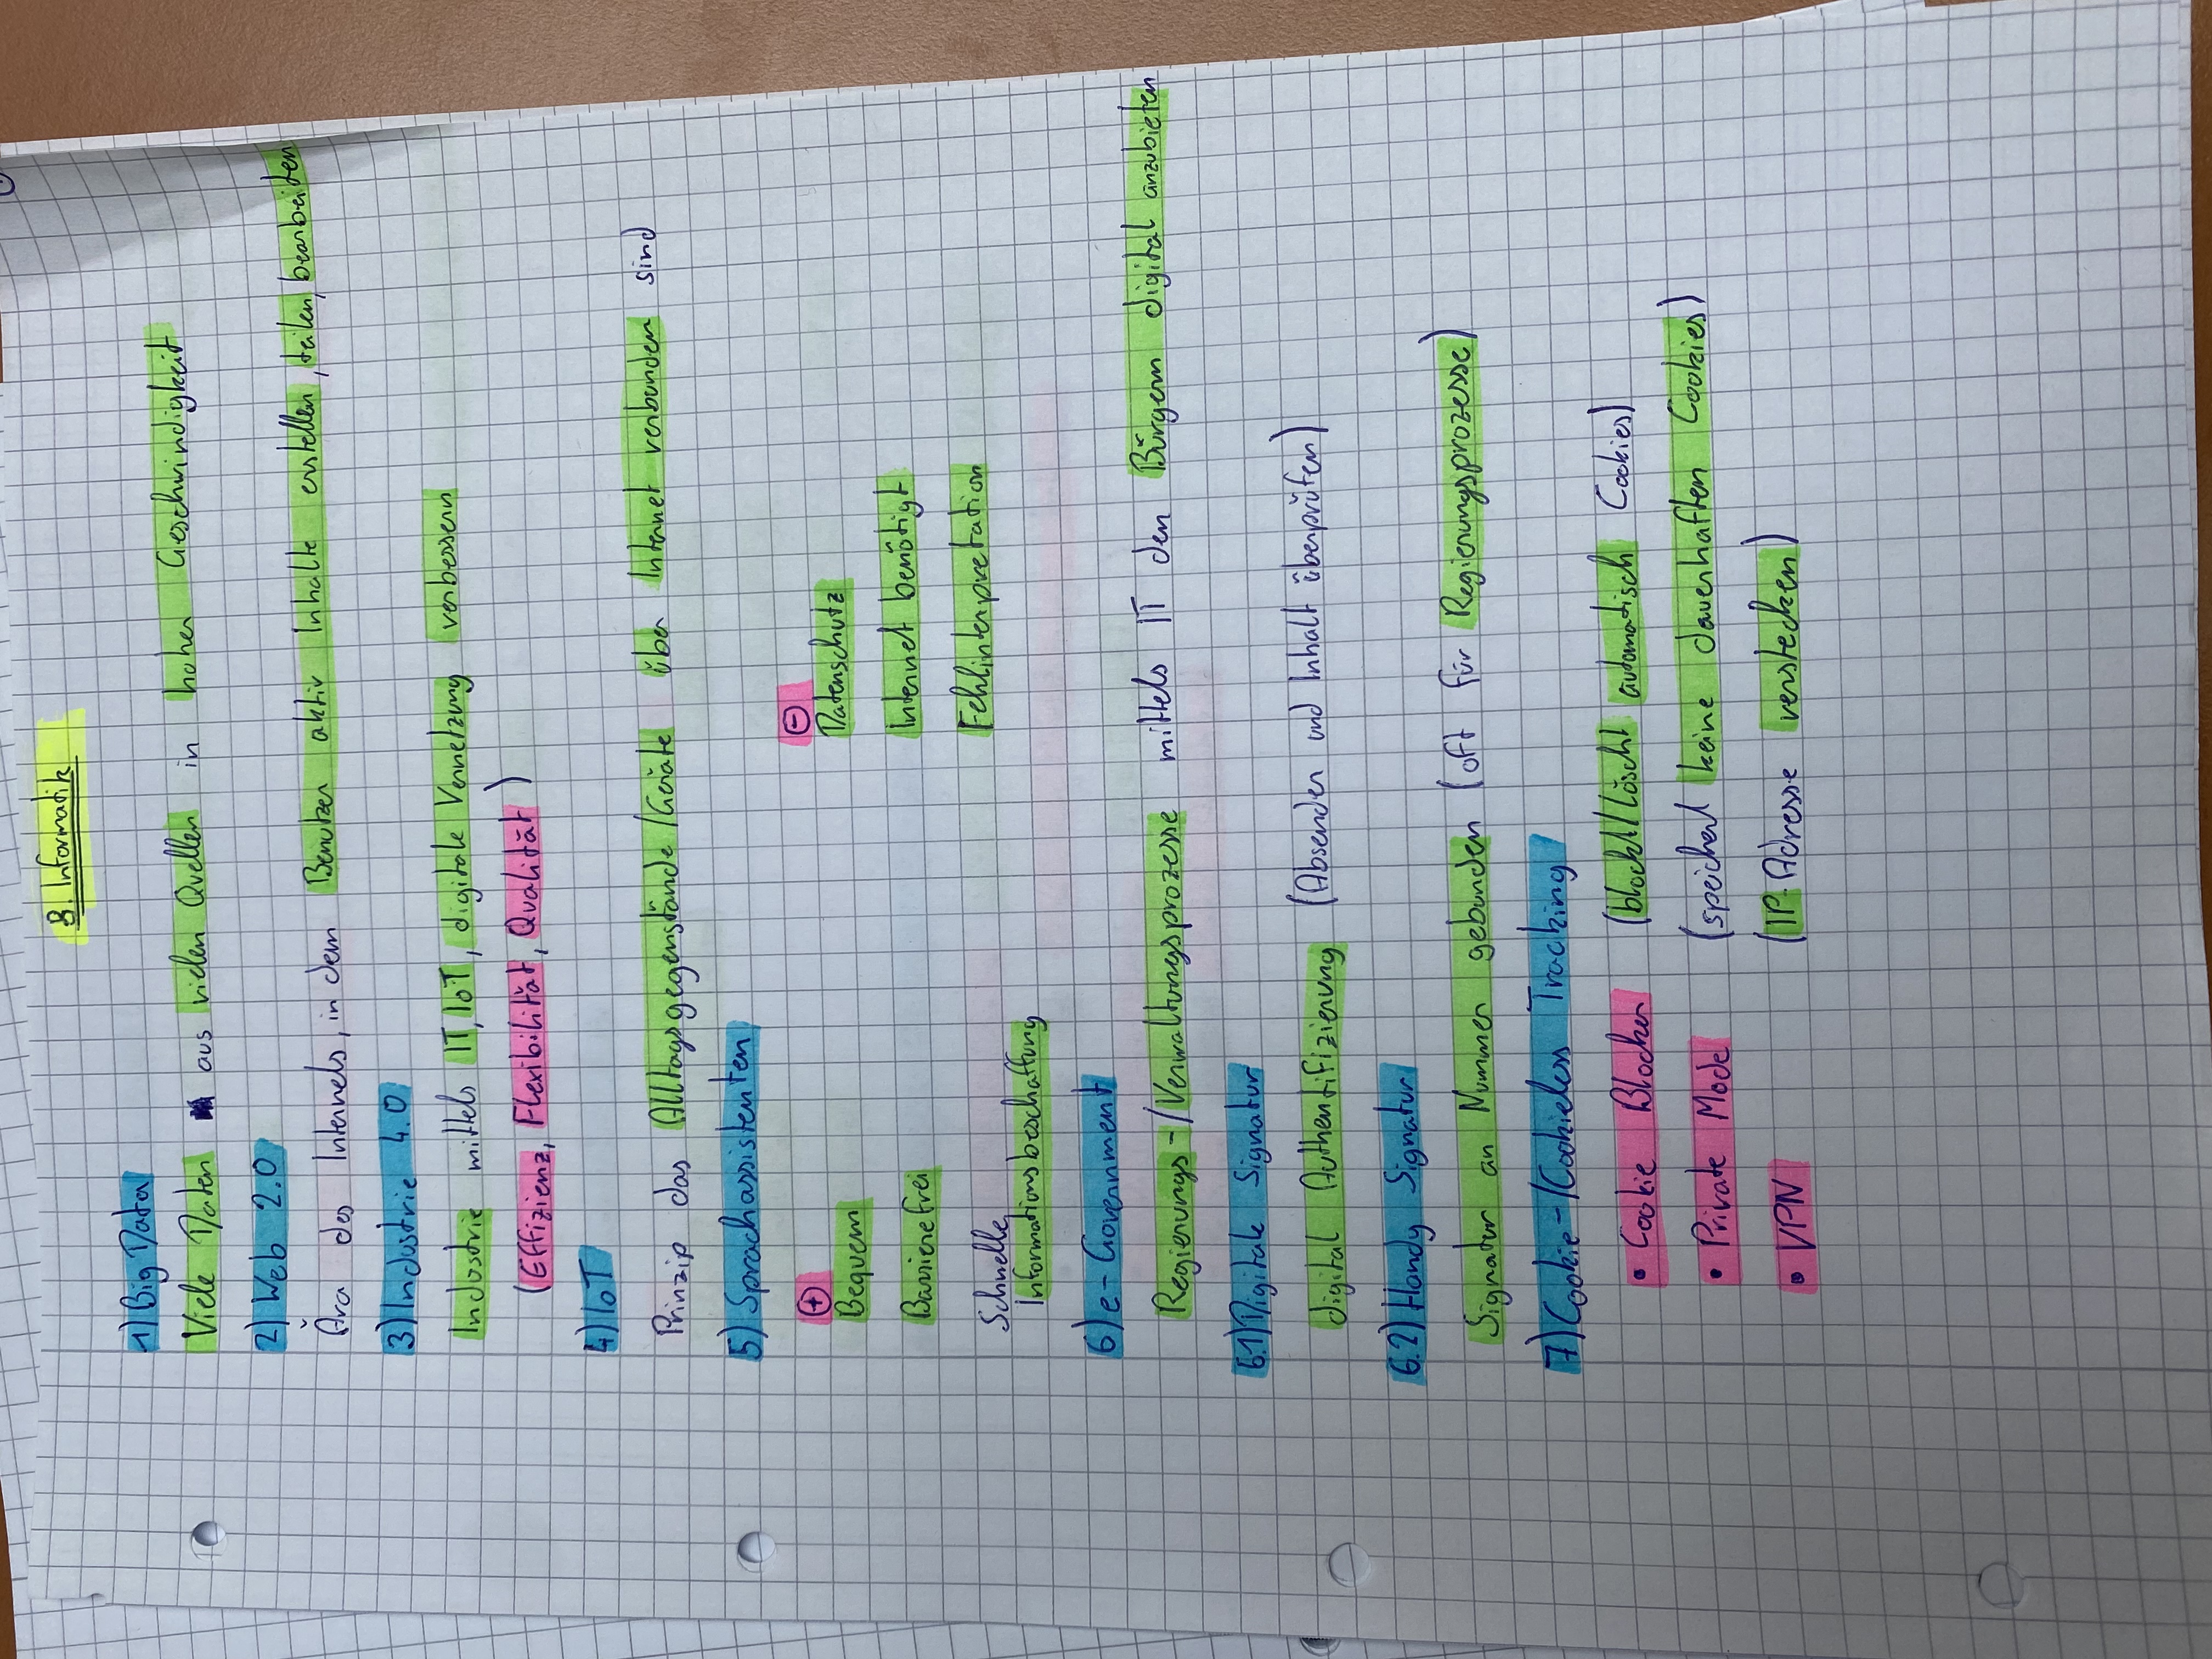 8. Informatik
1) Big Data
Viele Daten aus vielen Quellen in hoher Geschwindigkeit
2) Web 2.0
Ära des Internets, in dem Benutzer aktiv Inhalte erstellen, teilen, bearbeiten
3) Industrie 4.0
Industrie mittels IT, IoT, digitale Vernetzung verbessern
(Effizienz, Flexibilität, Qualität)
4) IoT
Prinzip das Alltagsgegenstände/Geräte über Internet verbunden sind
5) Sprachassistenten
+
Bequem
Barrierefrei
Schnelle
Informationsbeschaffung
-
Datenschutz
Internet benötigt
Fehlinterpretation
6) e-Government
Regierungs-/Verwaltungsprozesse mittels IT den Bürgern digital anzubieten
6.1) Digitale Signatur
digital Authentifizierung (Absender und Inhalt überprüfen)
6.2) Handy Signatur
Signatur an Nummer gebunden (oft für Regierungsprozesse)
7) Cookie-/Cookieless Tracking
• Cookie Blocker (blockt/löscht automatisch Cookies)
• Private Mode (speichert keine dauerhaften Cookies)
• VPN (IP-Adresse verstecken)